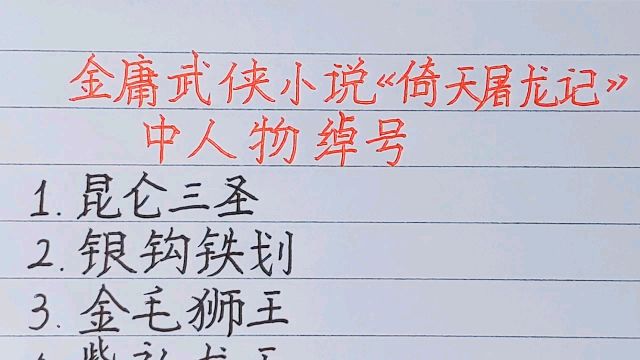 金庸武侠小说《倚天屠龙记》
中人物绰号
1.昆仑三圣
2.银钩铁划
3.金毛狮王